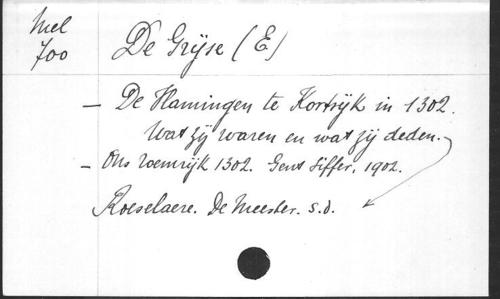 Mel
700
De Gryse (E)
— De Vlamingen te Kortrijk in 1302.
Wat zij waren en wat zij deden.
— Ons roemrijk 1302. Gent Siffer, 1902.
Roeselaere. De Meester. s.d.